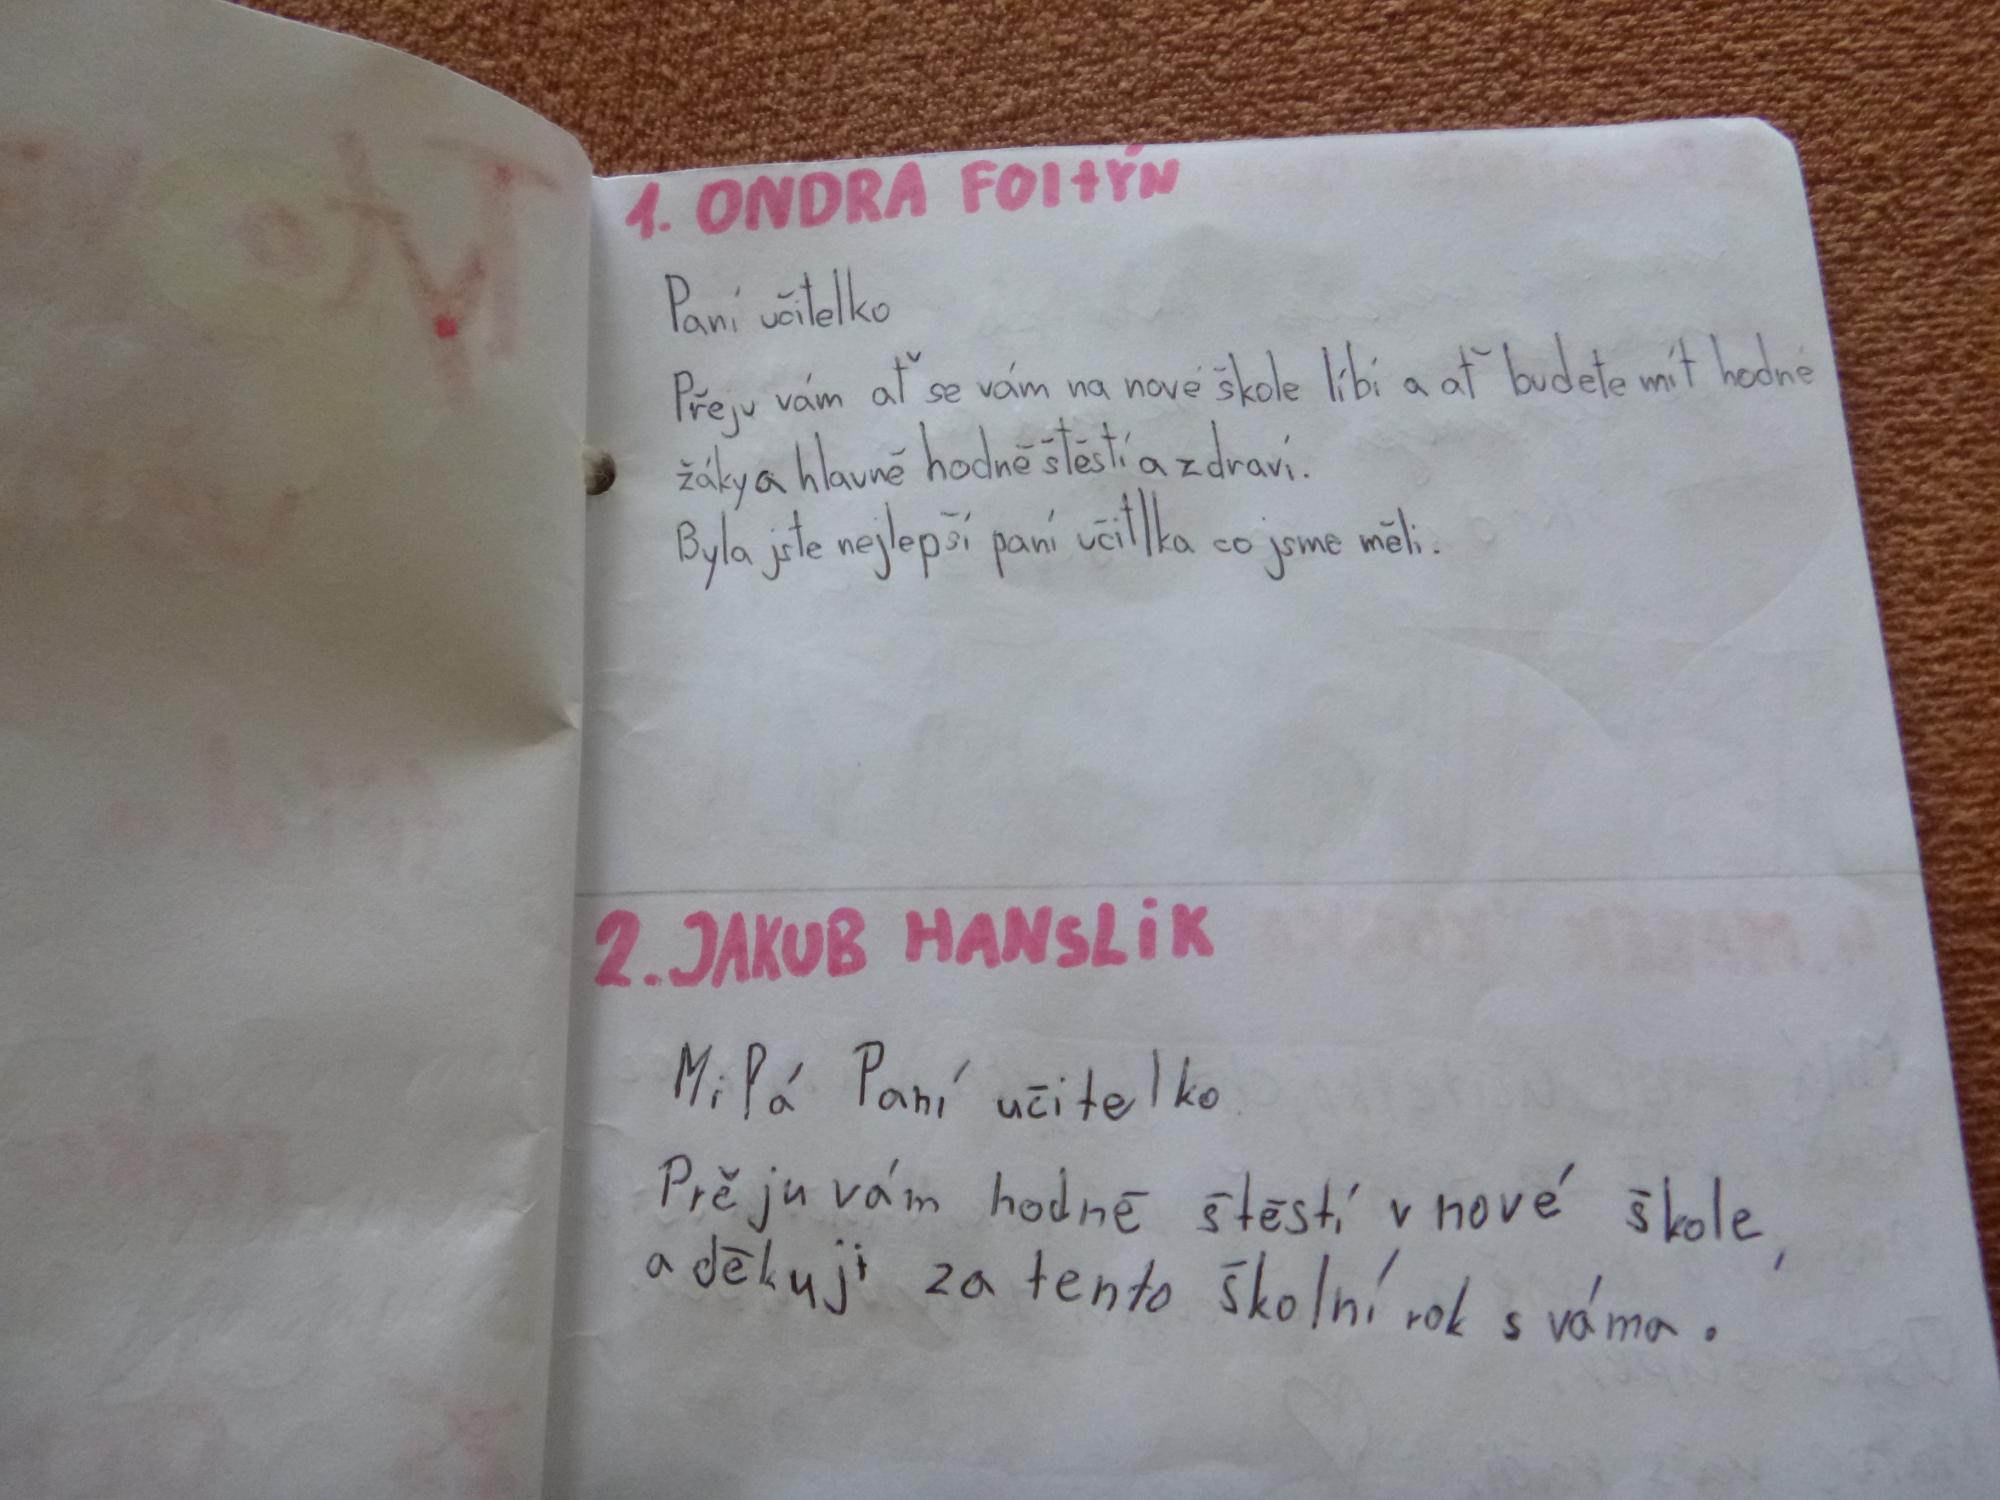 1. ONDRA FOltÝN
Paní učitelko
Přeju vám ať se vám na nové škole líbí a ať budete mít hodné
žáky a hlavně hodně štěstí a zdraví.
Byla jste nejlepší paní učitlka co jsme měli.
2. JAKUB HANSLiK
Milá Paní učitelko
Prěju vám hodně štěstí v nové škole,
a děkuji za tento školní rok s váma.